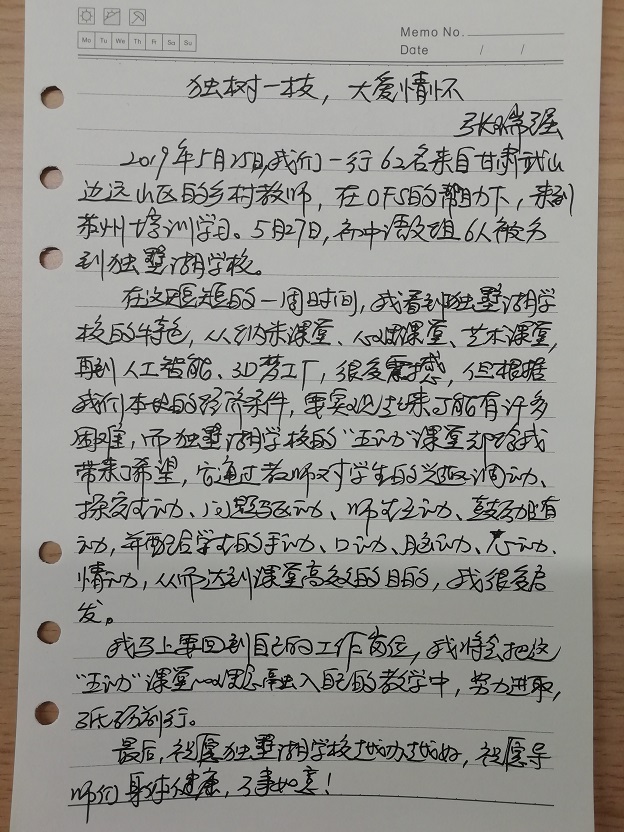 Mo Tu We Th Fr Sa Su
Memo No.
Date / /
独树一枝，大爱情怀
张瑞强
2019年5月25日，我们一行62名来自甘肃武山
边远山区的乡村教师，在OFS的帮助下，来到
苏州培训学习。5月27日，初中语文组6人被分
到独墅湖学校。
在这短短的一周时间，我看到独墅湖学
校的特色，从纳米课堂、心理课堂、艺术课堂，
再到人工智能、3D梦工厂，很多震撼，但根据
我们本地的经济条件，要实现起来可能有许多
困难，而独墅湖学校的“五动”课堂却给我
带来了希望，它通过教师对学生的兴趣调动、
探究生动、问题驱动、师生互动、鼓励有
动，并配合学生的手动、口动、脑动、心动、
情动，从而达到课堂高效的目的，我很多启
发。
我马上要回到自己的工作岗位，我将会把这
“五动”课堂融入自己的教学中，努力进取，
砥砺前行。
最后，祝愿独墅湖学校越办越好，祝愿导
师们身体健康，万事如意！